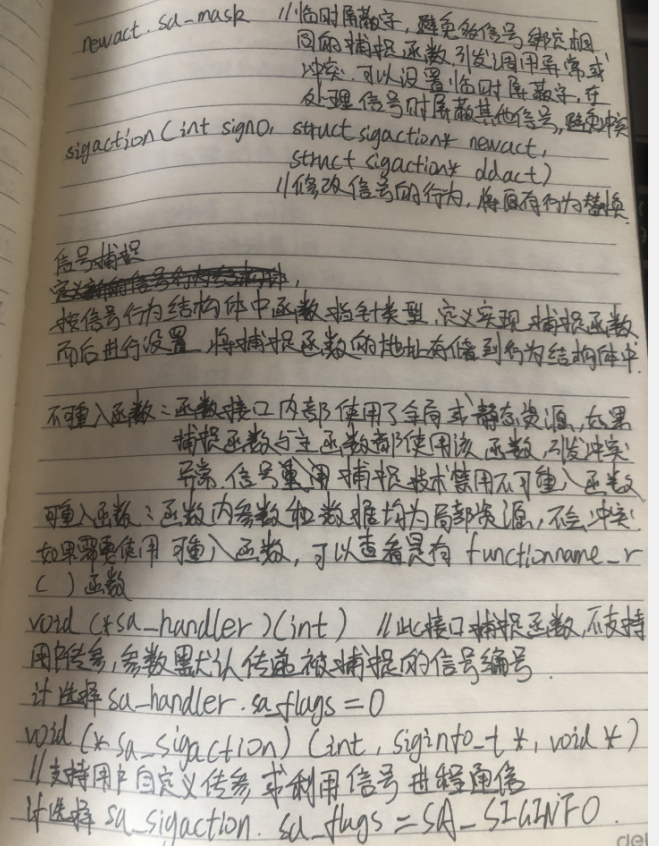 newact.sa_mask //临时屏蔽字，避免给信号绑定相
同的捕捉函数引发调用异常或
冲突.可以设置临时屏蔽字,在
处理信号时屏蔽其他信号,避免冲突
sigaction(int signo, struct sigaction* newact,
struct sigaction* oldact)
//修改信号的行为,将原有行为替换
信号捕捉
按信号行为结构体中函数指针类型,定义实现捕捉函数
而后进行设置,将捕捉函数的地址存储到行为结构体中.
不可重入函数:函数接口内部使用了全局或静态资源,如果
捕捉函数与主函数都使用该函数,引发冲突
异常,信号 捕捉技术禁用不可重入函数
可重入函数:函数内参数和数据均为局部资源,不会冲突
如果需要使用可重入函数,可以查看是有functionname_r
()函数
void (*sa_handler)(int) //此接口捕捉函数,不支持
用户传参,参数默认传递被捕捉的信号编号.
计选择sa_handler.sa_flags=0
void (*sa_sigaction)(int, siginfo_t*, void*)
//支持用户自定义传参或利用信号进程通信
计选择sa_sigaction. sa_flags=SA_SIGINFO.
del